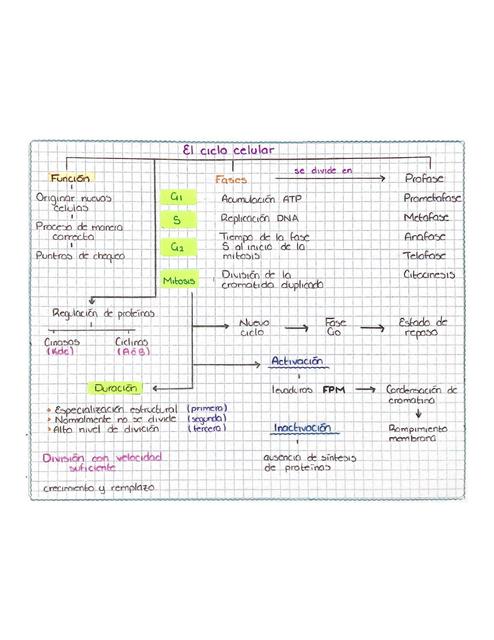 El ciclo celular
Función
Originar nuevas
células
Proceso de manera
correcta
Puntos de chequeo
Fases
se divide en
G1
Acumulación ATP
S
Replicación DNA
G2
Tiempo de la fase
S al inicio de la
mitosis
Mitosis
División de la
cromatida duplicada
Profase
Prometafase
Metafase
Anafase
Telofase
Citocinesis
Regulación de proteínas
Cinasas
(Kdc)
Ciclinas
(A ó B)
Nuevo
ciclo
Fase
G0
Estado de
reposo
Activación
levaduras FPM
Condensación de
cromatina
Rompimiento
membrana
Inactivación
ausencia de síntesis
de proteínas
Duración
Especialización estructural (primera)
Normalmente no se divide (segunda)
Alto nivel de división (tercera)
División con velocidad
suficiente
crecimiento y remplazo